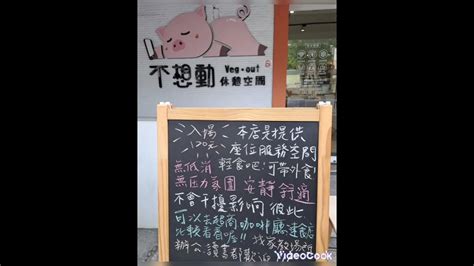 不想動
Veg-out
休憩空間
入場 本店是提供
120元 座位服務空間
無低消 輕食吧!可帶外食!
無压力氛圍 安静舒適
不會干擾影响彼此
可以去超商咖啡廳速食店
比較看看喔!!
辦公讀書都歡迎
VideoCook